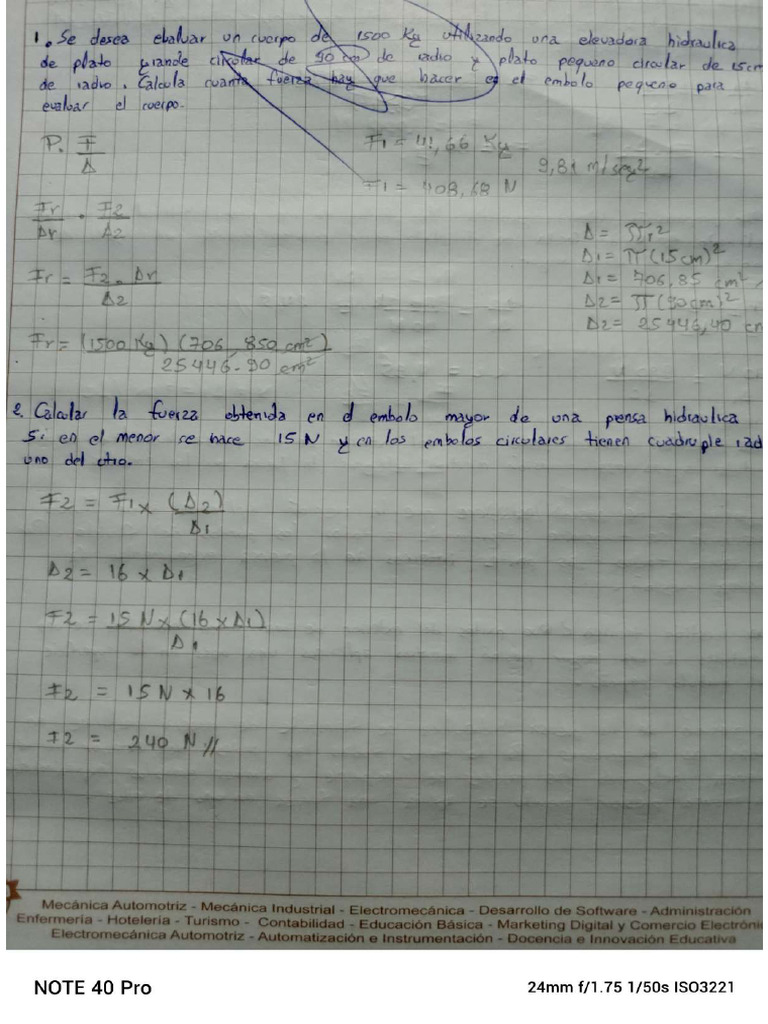 1. Se desea ebaluar un cuerpo de 1500 Kg utilizando una elevadora hidraulica
de plato grande circular de 90 cm de radio y plato pequeno circular de 15 cm
de radio. Calcula cuanta fuerza hay que hacer en el embolo pequeno para
evaluar el cuerpo.
P. F
A
F1 = 41,66 Kg
9,81 m/seg2
F1 = 408,68 N
Fr . F2
Ar A2
Fr = F2 . Ar
A2
Fr = (1500 Kg) (706,850 cm2)
25446.90 cm2
A = πr2
A1 = π(15cm)2
A1 = 706,85 cm2
A2 = π(90cm)2
A2 = 25446,40 cm
2. Calcular la fuerza obtenida en el embolo mayor de una prensa hidraulica
Si en el menor se hace 15 N y en los embolos circulares tienen cuadruple rad
uno del otro.
F2 = F1 x (A2)
A1
A2 = 16 x A1
F2 = 15 N x (16 x A1)
A1
F2 = 15 N x 16
F2 = 240 N //
Mecánica Automotriz - Mecánica Industrial - Electromecánica - Desarrollo de Software - Administración
Enfermería - Hotelería - Turismo - Contabilidad - Educación Básica - Marketing Digital y Comercio Electróni
Electromecánica Automotriz - Automatización e Instrumentación - Docencia e Innovación Educativa
NOTE 40 Pro
24mm f/1.75 1/50s ISO3221